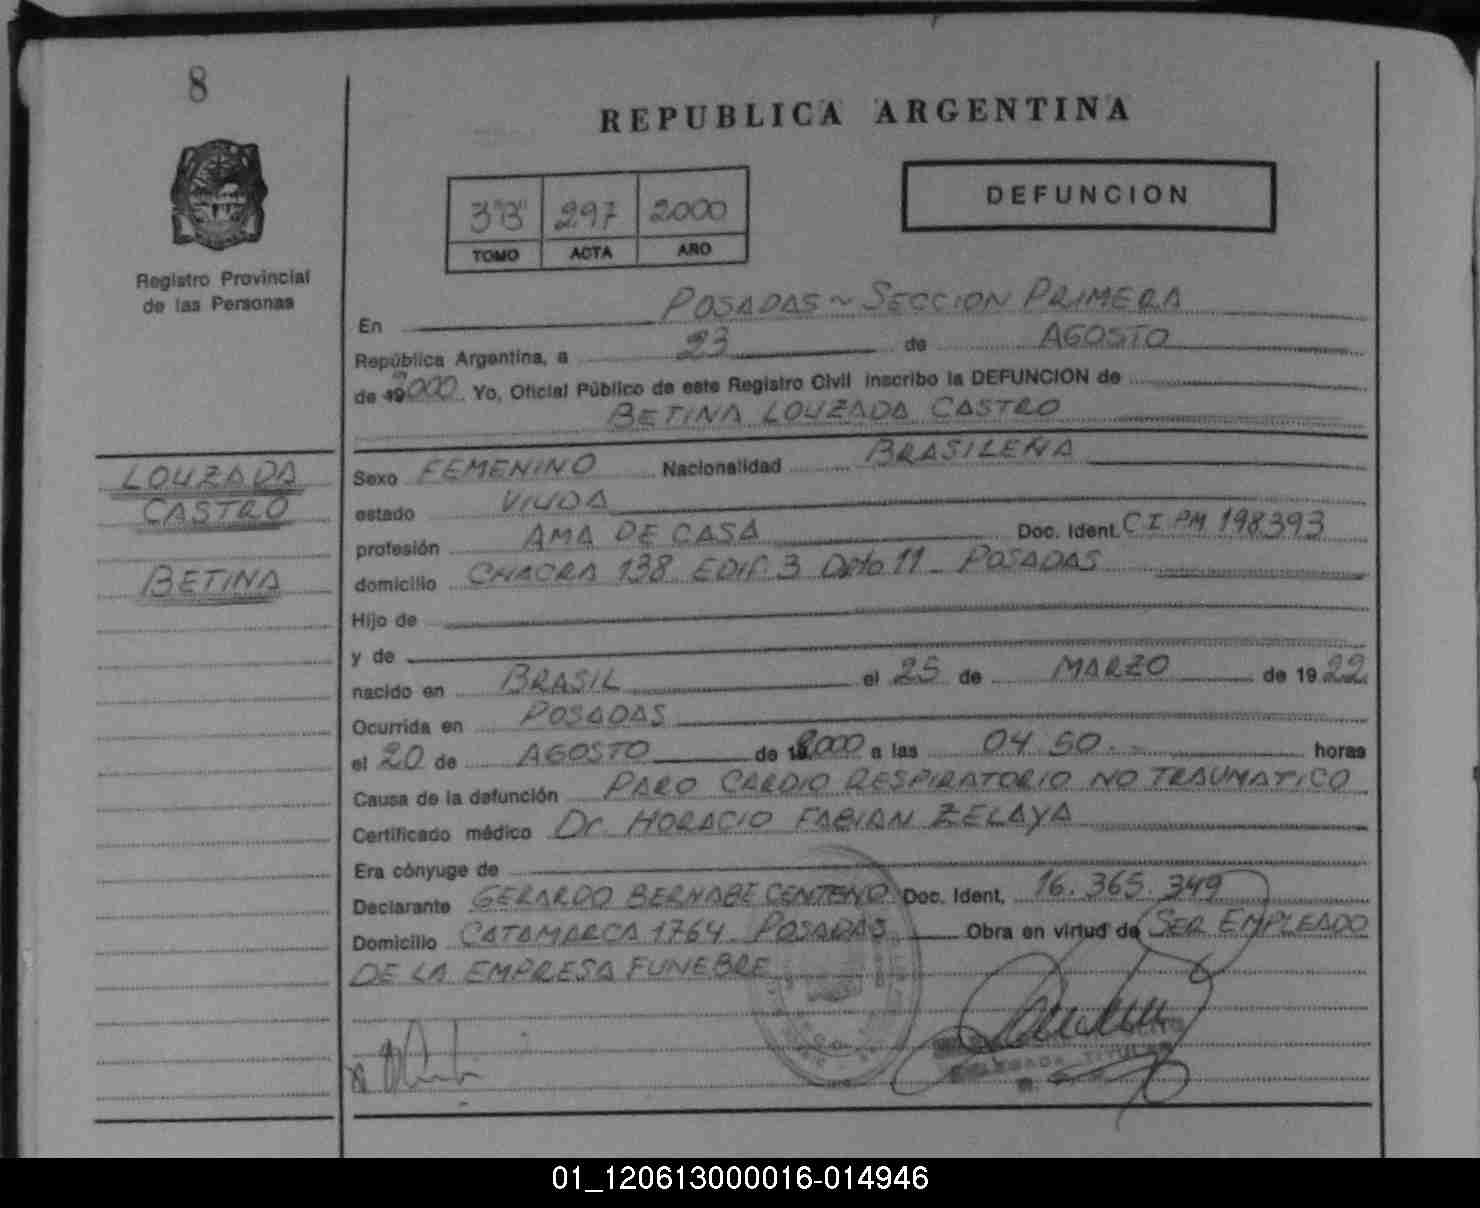 8
REPUBLICA ARGENTINA
Registro Provincial
de las Personas
3"B" 297 2000
TOMO ACTA AÑO
DEFUNCION
En POSADAS ~ SECCION PRIMERA
República Argentina, a 23 de AGOSTO
de 2000. Yo, Oficial Público de este Registro Civil inscribo la DEFUNCION de
BETINA LOUZADA CASTRO
LOUZADA
CASTRO
BETINA
Sexo FEMENINO Nacionalidad BRASILEÑA
estado VIUDA
profesión AMA DE CASA Doc. Ident. C I PM 198393
domicilio CHACRA 138 EDIF 3 Dpto 11 - POSADAS
Hijo de
y de
nacido en BRASIL el 25 de MARZO de 1922
Ocurrida en POSADAS
el 20 de AGOSTO de 2000 a las 04 50 horas
Causa de la defunción PARO CARDIO RESPIRATORIO NO TRAUMATICO
Certificado médico Dr. HORACIO FABIAN ZELAYA
Era cónyuge de
Declarante GERARDO BERNABE CENTENO Doc. Ident. 16.365.349
Domicilio CATAMARCA 1764 POSADAS Obra en virtud de SER EMPLEADO
DE LA EMPRESA FUNEBRE
TITULAR
01_120613000016-014946